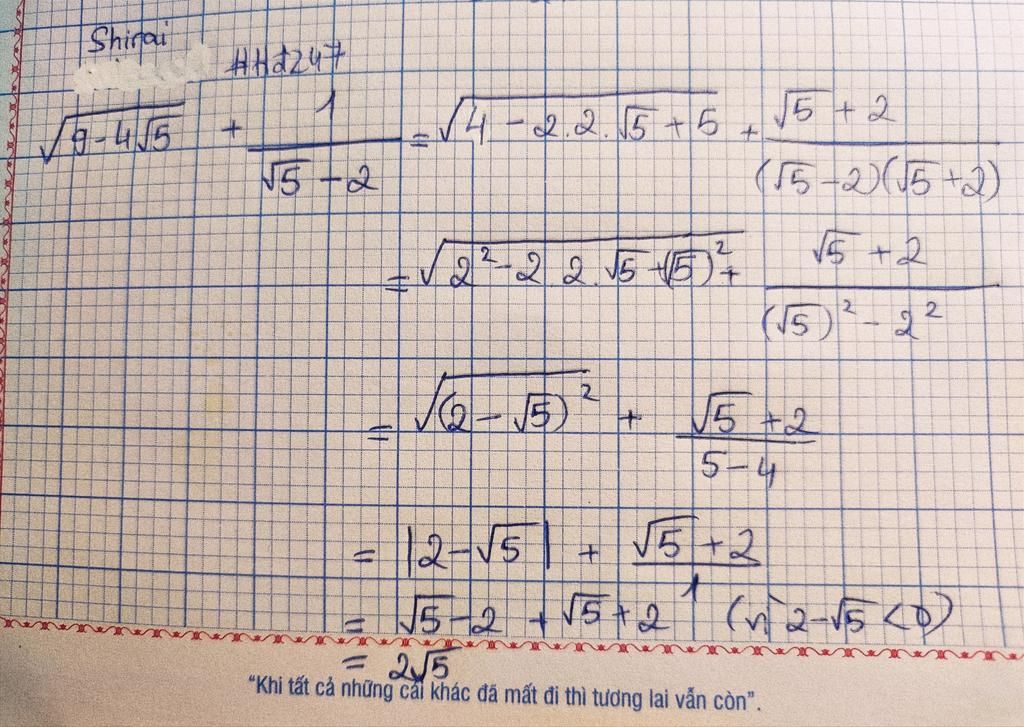 Shirai
HH1247
√(9-4√5) + 1/(√5-2) = √(4-2.2.√5+5) + (√5+2)/((√5-2)(√5+2))
= √(2²-2.2.√5+(√5)²) + (√5+2)/((√5)²-2²)
= √((2-√5)²) + (√5+2)/(5-4)
= |2-√5| + (√5+2)/1
= √5-2+√5+2 (vì 2-√5<0)
= 2√5
“Khi tất cả những cái khác đã mất đi thì tương lai vẫn còn”.